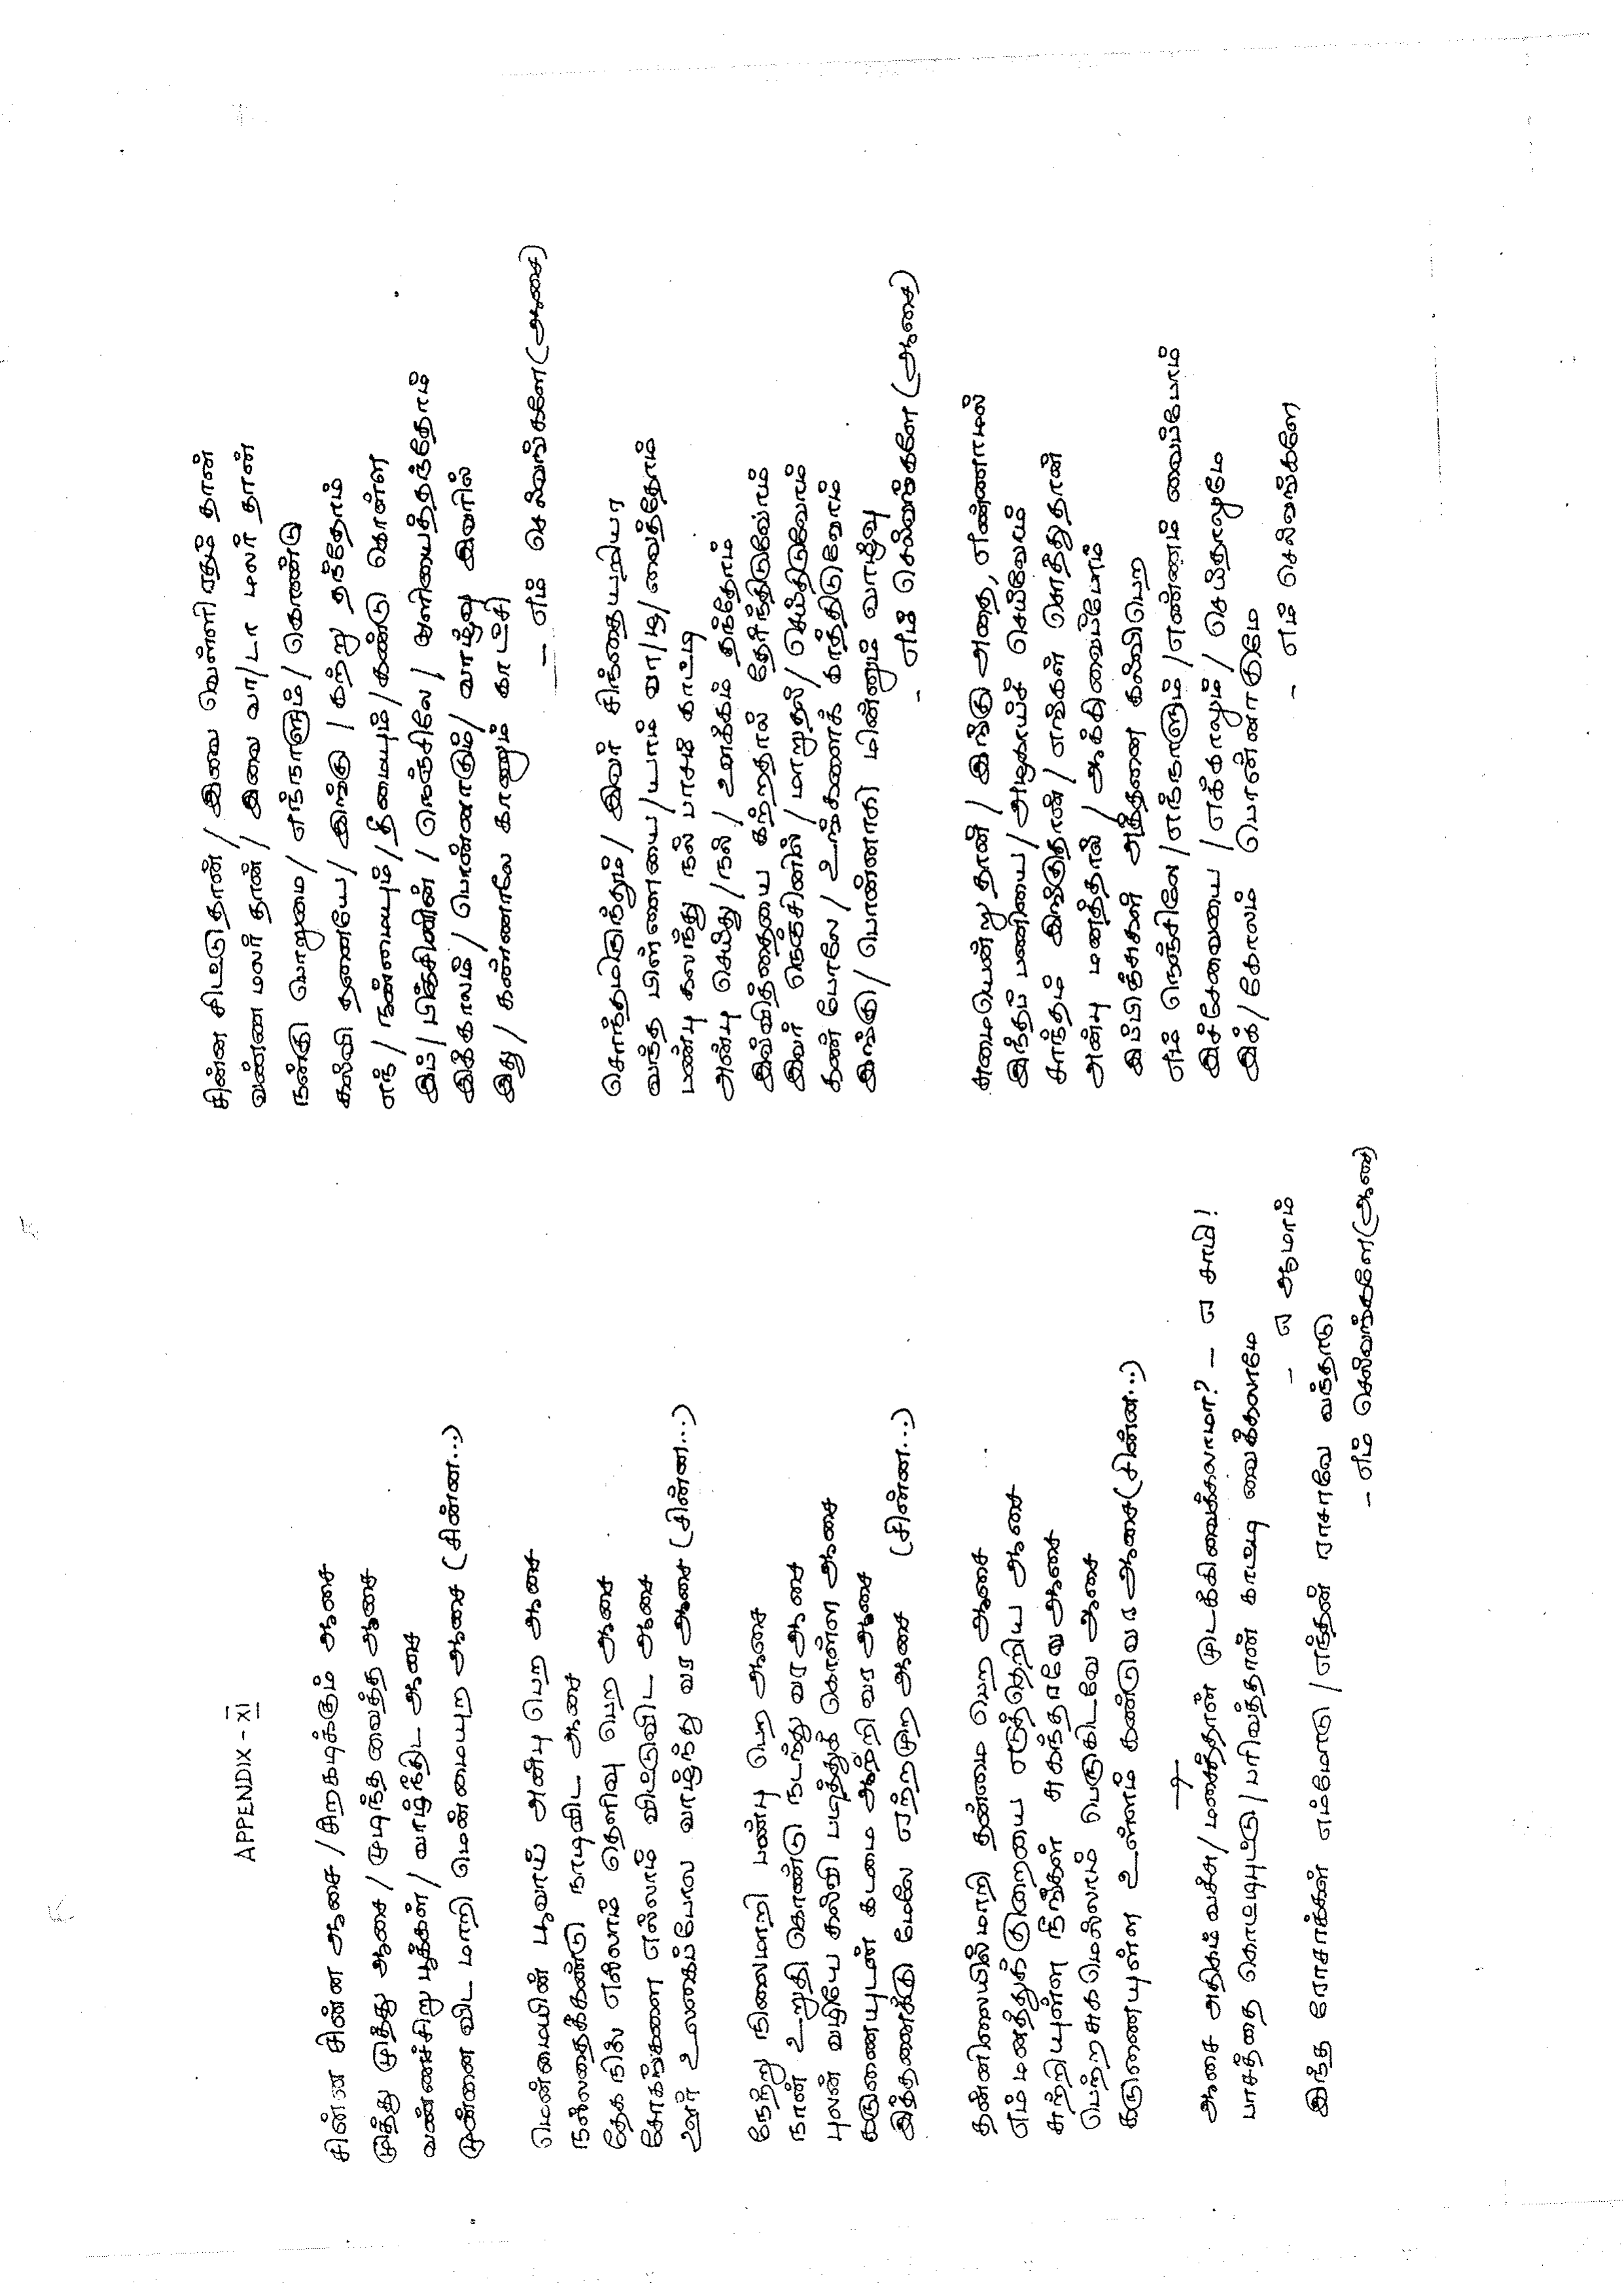 APPENDIX - XI
சின்ன சின்ன ஆசை / சிறகடிக்கும் ஆசை
முத்து முத்து ஆசை / முடிந்த வைத்த ஆசை
வண்ணச்சிறு பூக்கள் / வாழ்ந்திட ஆசை
முன்னை விட மாறி மென்மையுற ஆசை (சின்ன...)
மென்மையின் பூவாய் அன்பு பெற ஆசை
நல்லதைக்கண்டு நாடிவிட ஆசை
தேக நில் எல்லாம் தெளிவு பெற ஆசை
சோகங்களை எல்லாம் விட்டுவிட ஆசை
ஊர் உலகைப்போல வாழ்ந்து வர ஆசை (சின்ன...)
நேற்று நிலைமாறி பண்பு பெற ஆசை
நான் உறுதி கொண்டு நடந்து வர ஆசை
புலன் வழியே கல்வி படித்துக் கொள்ள ஆசை
கருணையுடன் கடமை ஆற்றி வர ஆசை
இத்தனைக்கு மேலே ஏற்றமுற ஆசை (சின்ன...)
தன்னிலையில்மாறி தன்மை பெற ஆசை
எம் மனத்துக் குறையை எடுத்தெறிய ஆசை
சுற்றியுள்ள நீங்கள் சுகந்தாவே ஆசை
பெற்ற சுகமெல்லாம் பெருகிடவே ஆசை
கருணையுள்ள உள்ளம் கண்டு வர ஆசை (சின்ன...)
ஆசை அதிகம் வச்சு / மனசத்தான் முடக்கிவைக்கலாமா? - ஏ சாமி!
பாசத்தை கொட்டிபுட்டு / பரிவத்தான் காட்டி வைக்கலாமே
- ஏ ஆமாம்
இந்த ரோசாக்கள் எம்மோடு / எந்தன் ராசாவே வந்தாடு
- எம் செல்வங்களே (ஆசை)
சின்ன சிட்டு தான் / இவை வெள்ளி ரதம் தான்
வண்ண மலர் தான் / இவை வா/டா மலர் தான்
நன்கு பொறுமை / எந்நாளும் / கொண்டு
கல்வி தனையே / இங்கு / கற்று தந்தோம்
எந் / நன்மையும் / தீமையும் / கண்டு கொள்ள
இம் / பிஞ்சினின் / நெஞ்சிலே / ஒளியைத்தந்தோம்
இக்காலம் / பொன்னாடும் / வாழ்வு இவரில்
இது / கண்ணாலே காணும் காட்சி
- எம் செல்வங்களே (ஆசை)
சொந்தமிருந்தும் / இவர் சிந்தையறியர
வந்த பிள்ளையை / யாம் வா/டி/வைத்தோம்
பண்பு கலந்து நல் பாசம் காட்டி
அன்பு செய்து / நல் / ஊக்கம் தந்தோம்
இவ்வித்தையை கற்றதால் தேர்ந்திடுவோம்
இவர் நெஞ்சினில் / மாறுதல் / செய்திடுவோம்
கண் போலே / உங்களைக் காத்திடுவோம்
இங்கு / பொன்னாகி மின்னும் வாழ்வு
- எம் செல்வங்களே (ஆசை)
சுமையென்று தான் / இங்கு அதை, எண்ணாமல்
இந்தப் பணியை / அழகாய்ச் செய்வோம்
சொந்தம் இங்குதான் / எங்கள் சொத்து தான்
அன்பு மனத்தால் / ஆக்கிவைப்போம்
இப்பிஞ்சுகள் அத்தனை கல்விபெற
எம் நெஞ்சிலே / எந்நாளும் / எண்ணம் வைப்போம்
இச்சேவையை / எக்காலும் / செய்தாலுமே
இக் / கோலம் பொன்னாகுமே
- எம் செல்வங்களே